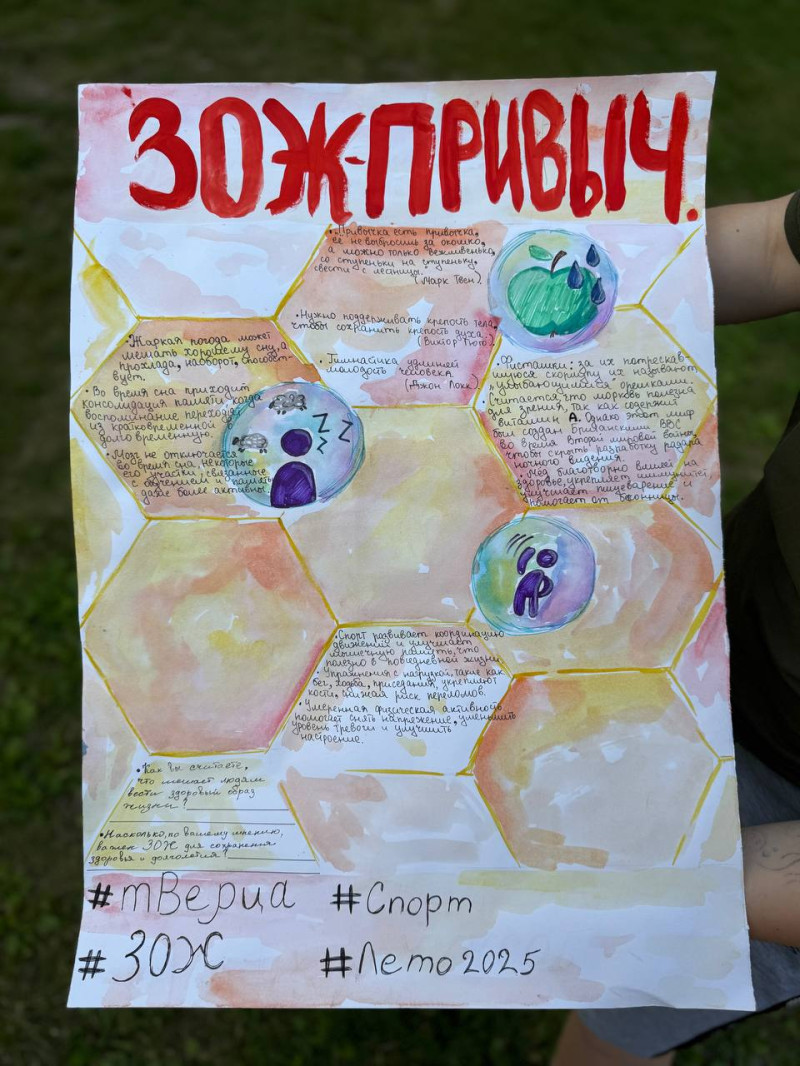 ЗОЖ-ПРИВЫЧ.
• Привычка есть привычка,
её не выбросишь за окошко,
а можно только вежливенько,
со ступеньки на ступеньку,
свести с лестницы.
(Марк Твен)
• Нужно поддерживать крепость тела,
чтобы сохранить крепость духа.
(Виктор Гюго)
• Гимнастика удлиняет
молодость человека.
(Джон Локк)
• Жаркая погода может
мешать хорошему сну, а
прохлада, наоборот, способст-
вует.
• Во время сна приходит
консолидация памяти, когда
воспоминание переходят
из кратковременной в
долговременную.
• Мозг не отключается
во время сна, некоторые
его участки, связанные
с обучением и память
даже более активны.
Z Z
Z
• Фисташки: за их потрескав-
шуюся скорлупу их называют
улыбающимися орешками.
Считается, что морковь полезна
для зрения, так как содержит
витамин А. Однако этот миф
был создан Британскими ВВС
во время Второй мировой войны,
чтобы скрыть разработку радара
ночного видения.
• Мёд благотворно влияет на
здоровье, укрепляет иммунитет,
улучшает пищеварение и
помогает от бессонницы.
• Спорт развивает координацию
движений и улучшает
мышечную память, что
полезно в повседневной жизни.
Упражнения с нагрузкой, такие как
бег, ходьба, приседания, укрепляют
кости, снижая риск переломов.
• Умеренная физическая активность
помогает снять напряжение, уменьшить
уровень тревоги и улучшить
настроение.
• Как вы считаете,
что мешает людям
вести здоровый образ
жизни?
• Насколько, по вашему мнению,
важен ЗОЖ для сохранения
здоровья и долголетия?
#тВерца #Спорт
#ЗОЖ #Лето2025